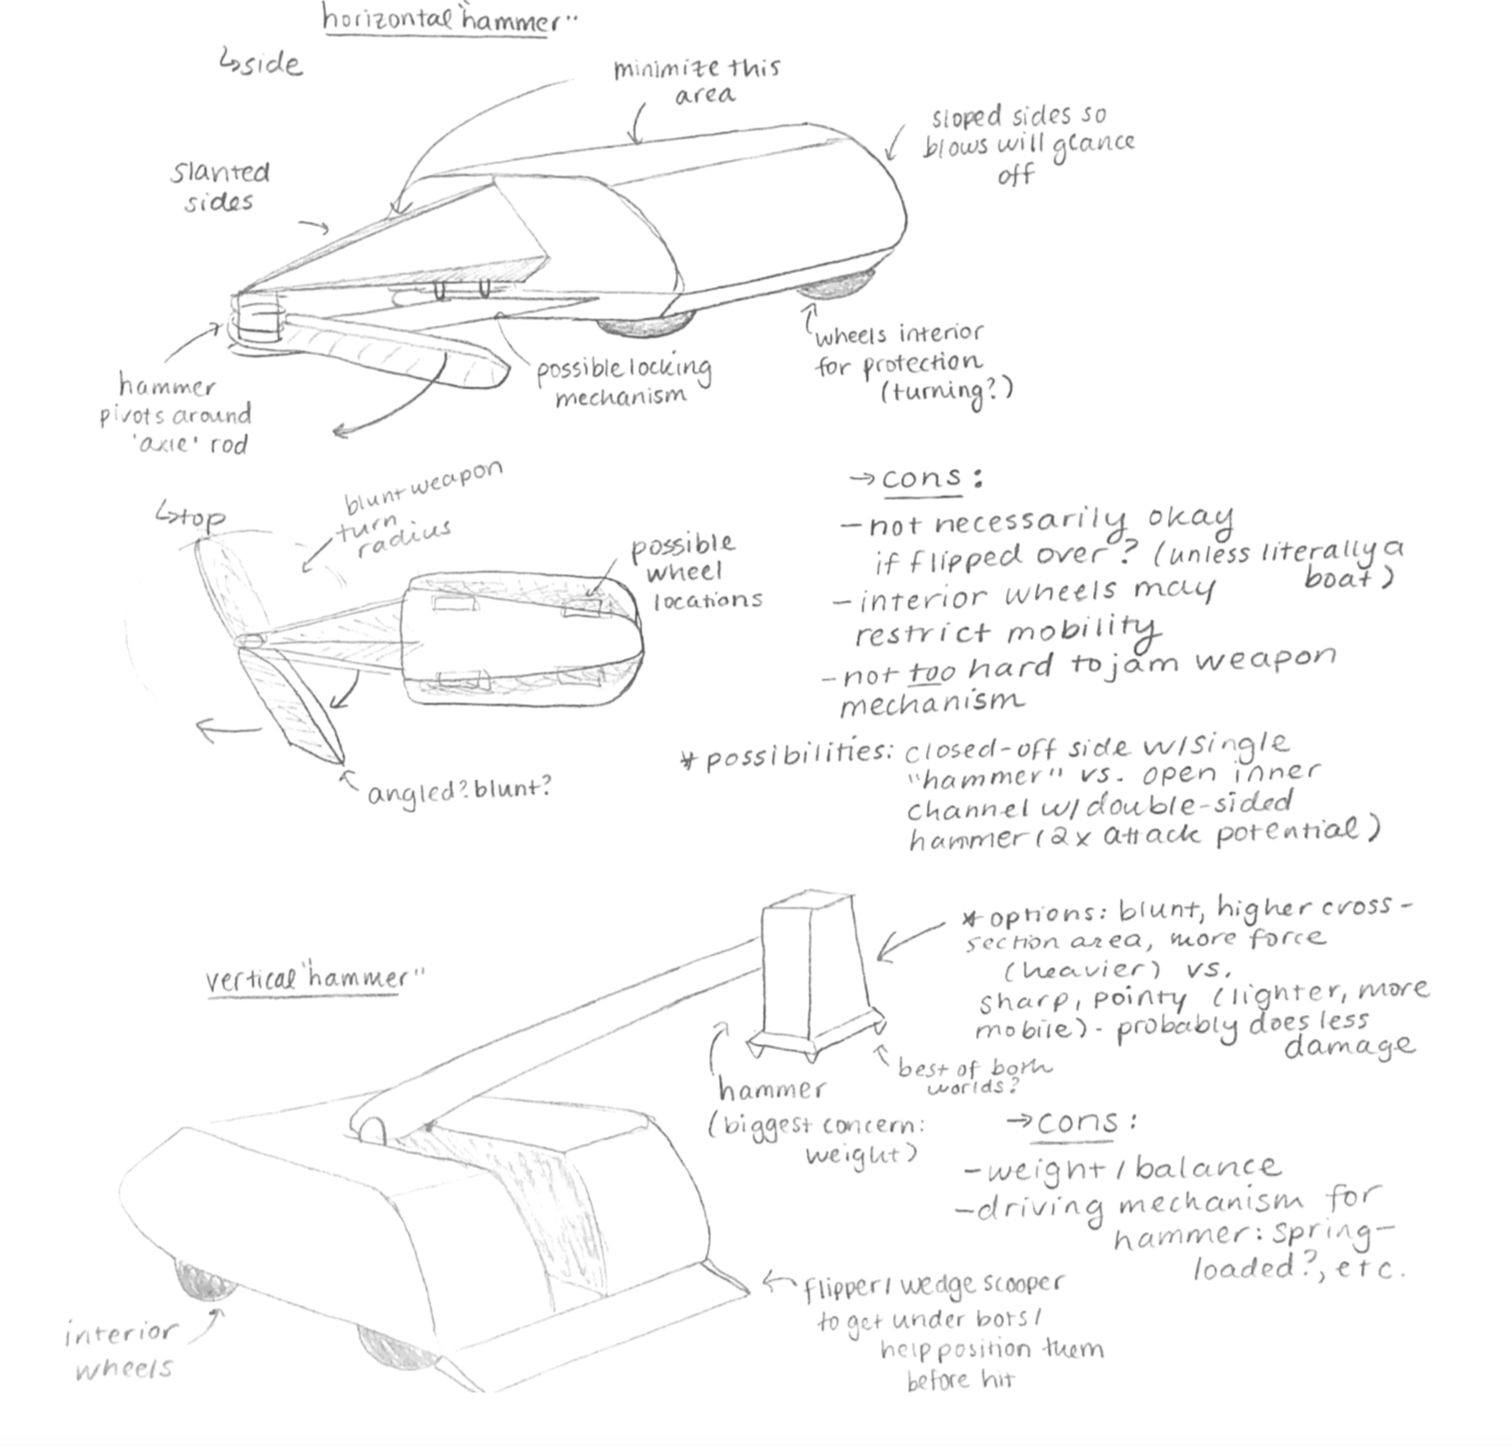 horizontal "hammer"
↳side
minimize this
area
sloped sides so
blows will glance
off
slanted
sides
wheels interior
for protection
(turning?)
possible locking
mechanism
hammer
pivots around
'axle' rod
↳top
blunt weapon
turn
radius
possible
wheel
locations
angled? blunt?
→cons:
-not necessarily okay
if flipped over? (unless literally a
boat)
-interior wheels may
restrict mobility
-not too hard to jam weapon
mechanism
* possibilities: closed-off side w/single
"hammer" vs. open inner
channel w/double-sided
hammer (2x attack potential)
vertical "hammer"
* options: blunt, higher cross-
section area, more force
(heavier) vs.
sharp, pointy (lighter, more
mobile) - probably does less
damage
best of both
worlds?
hammer
(biggest concern:
weight)
→cons:
-weight/balance
-driving mechanism for
hammer: spring-
loaded?, etc.
flipper/wedge scooper
to get under bots/
help position them
before hit
interior
wheels